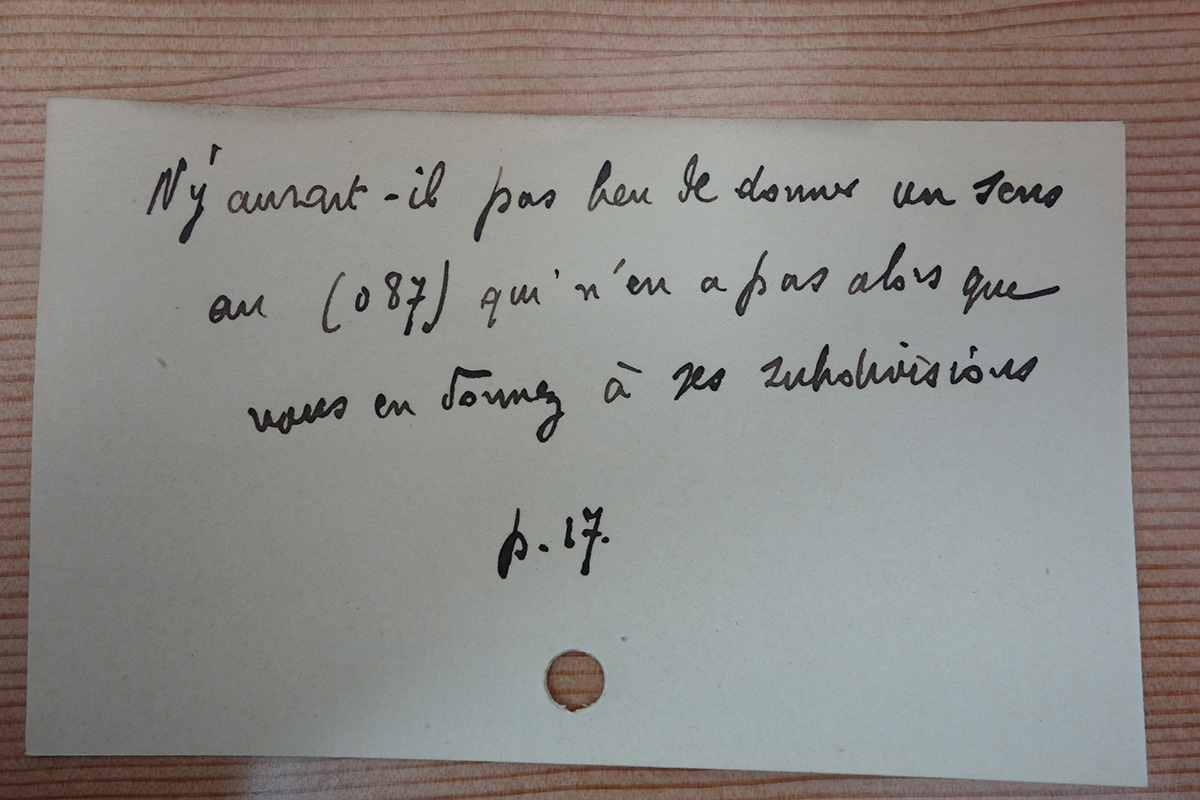 N'y aurait-il pas lieu de donner un sens
au (087) qui n'en a pas alors que
vous en donnez à ses subdivisions
p. 17.